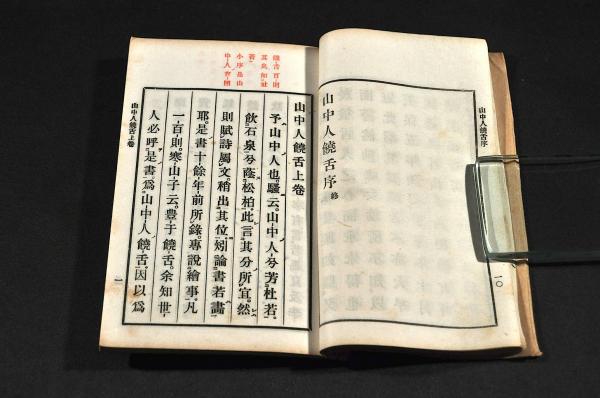 山中人饒舌序
一〇
山中人饒舌序 終
山中人饒舌上卷
予山中人也。騷云。山中人兮芳杜若。
飲石泉兮蔭松柏。此言其分所宜。然
則賦詩屬文。稍出其位。矧論書若畫
耶。是書十餘年前所錄。專說繪事。凡
一百則。寒山子云。豐干饒舌。余知世
人必呼是書爲山中人饒舌。因以爲
小序是山
山中人饒舌上卷
一